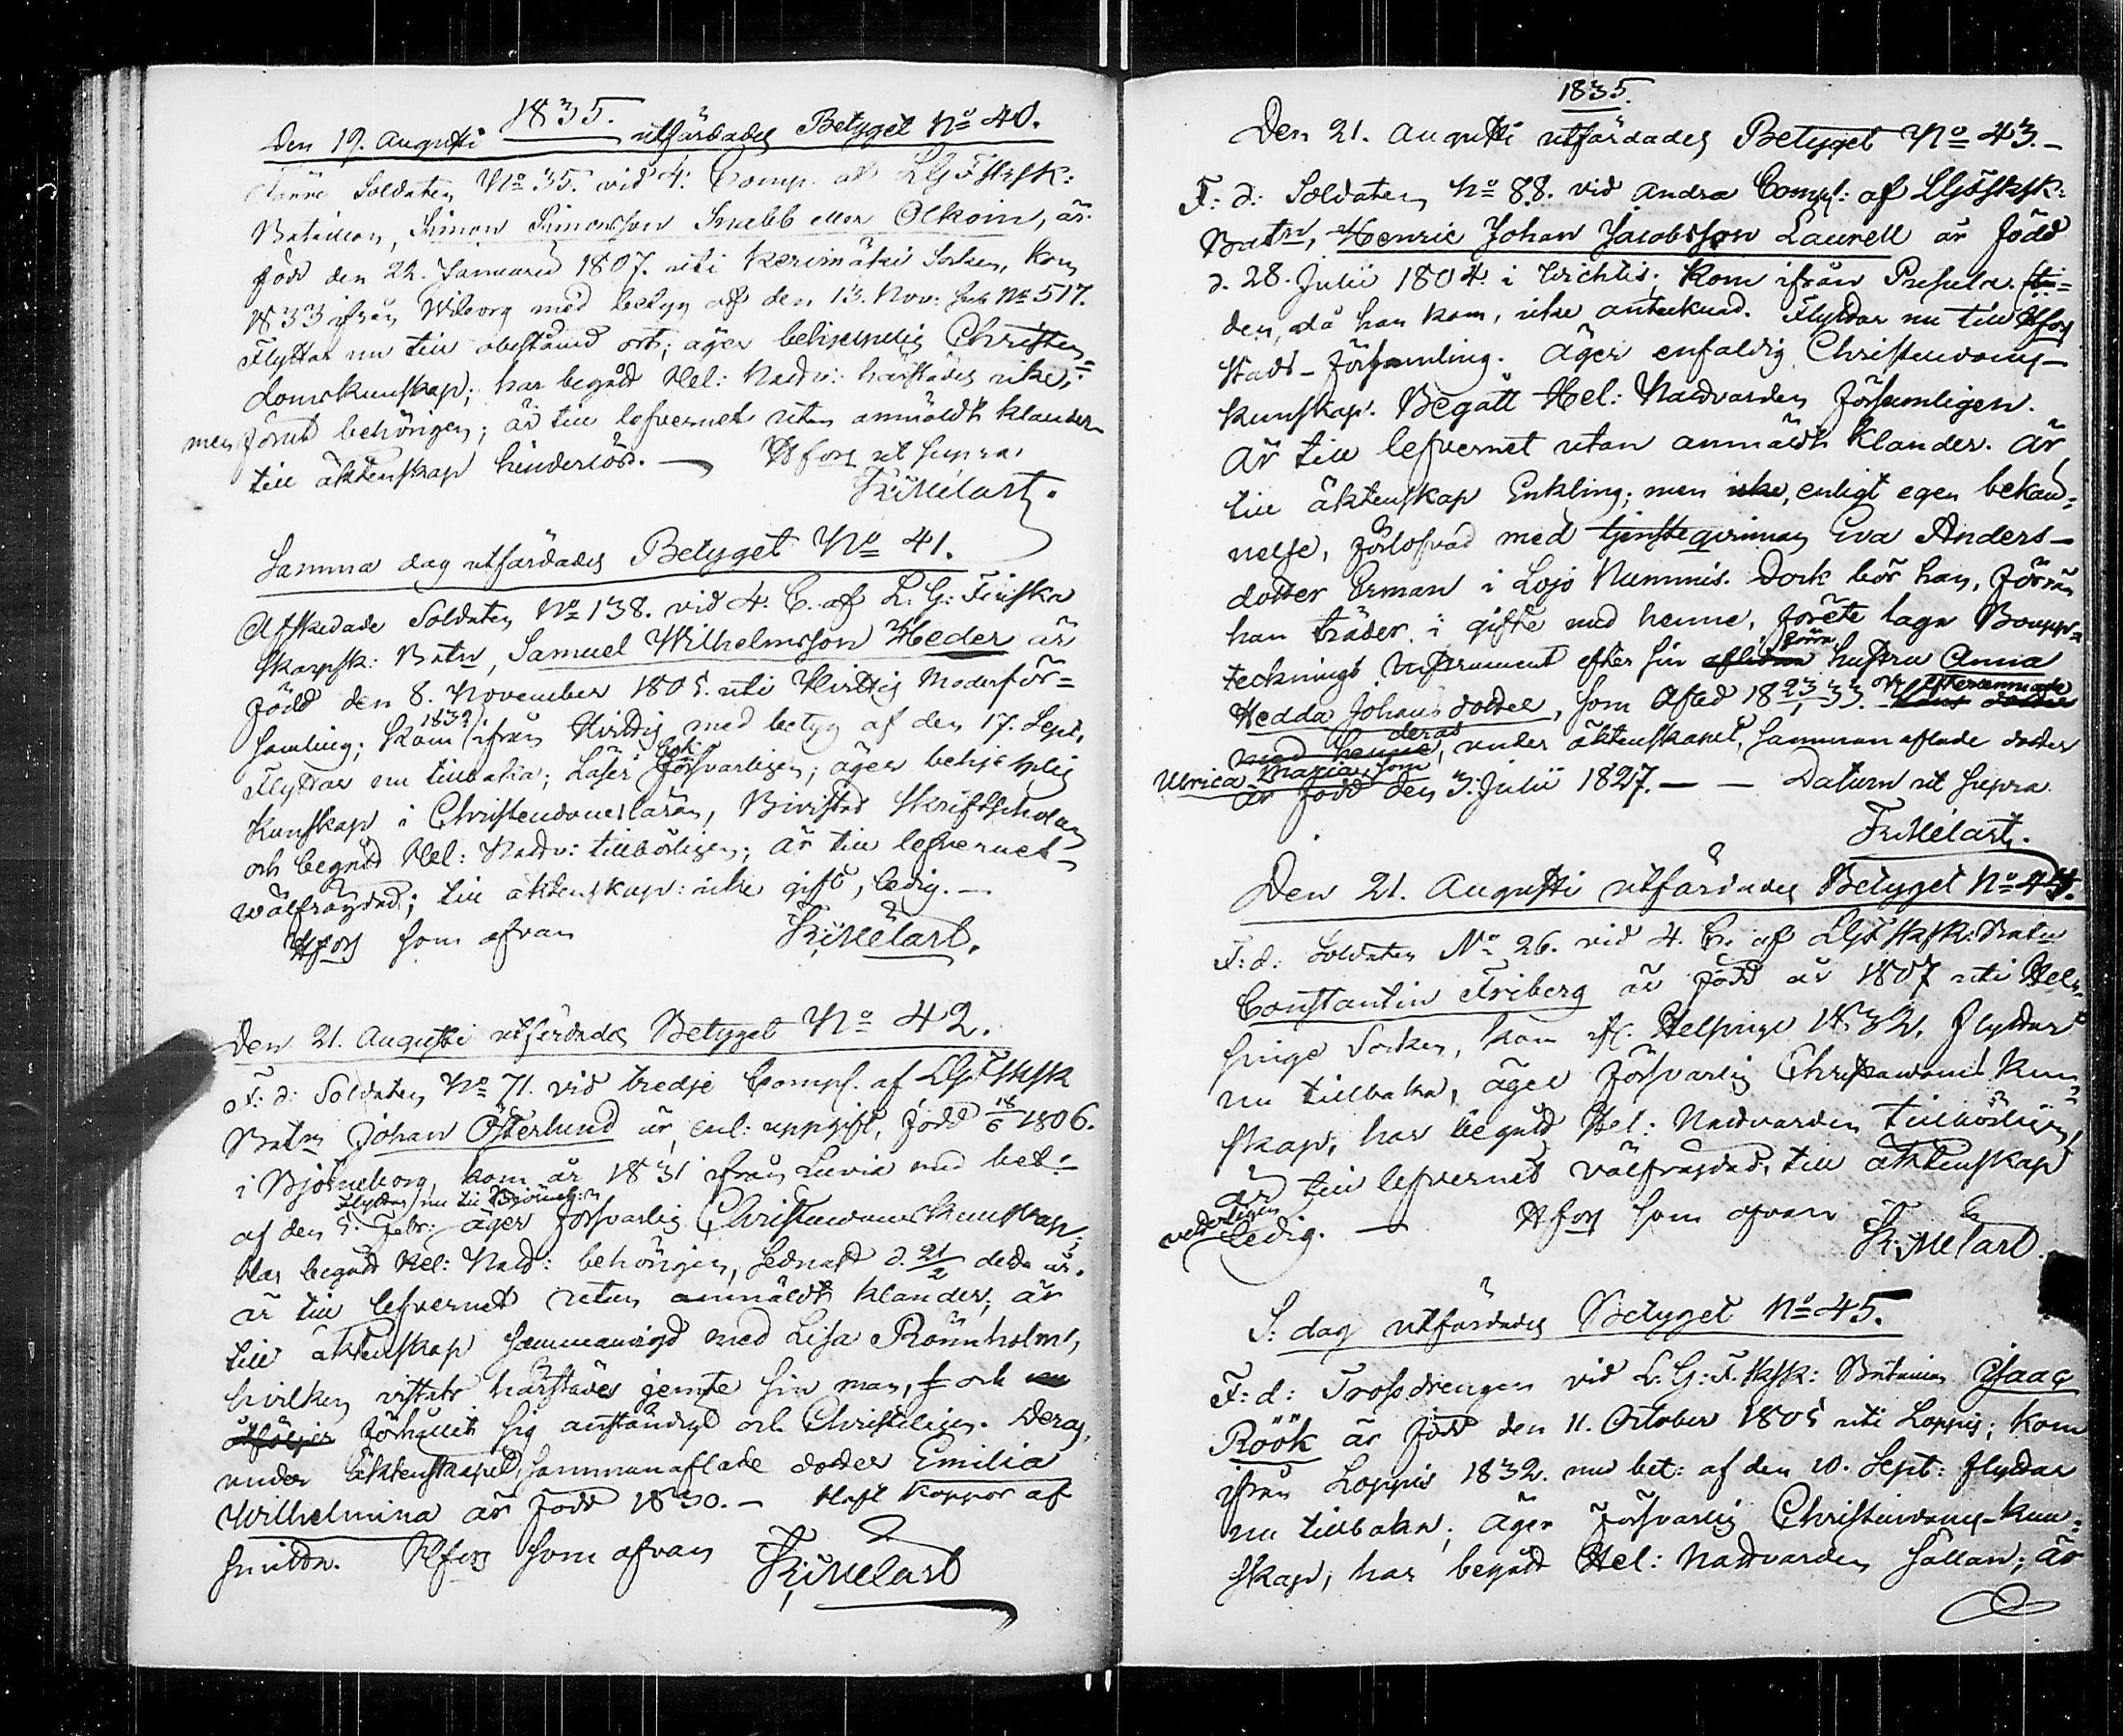 1835.
Den 19. Augusti utfärdades Betyget No 40.
Förre Soldaten No 35. vid 4. Comp. af LGFSksk:
Bataillon, Simon Simonsson Snabb eller Olkoin, är
född den 22. Januarii 1807. uti Kerimäki Socken, kom
1833 ifrån Wiborg med betyg af den 13. Nov: sub No 517.
Flyttar nu till obestämd ort; äger behjelpelig Christen=
domskunskap; har begått Hel: Nattv: härstädes icke,
men förut behörigen; är till lefvernet utan anmäldt klander
till äktenskap hinderlös. — Hfors ut supra.
Fr: Melart.
Samma dag utfärdades Betyget No 41.
Afskedade Soldaten No 138. vid 4. C. af L. G: Finska
Skarpsk: Batn, Samuel Wilhelmsson Heder är
född den 8. November 1805. uti Hvittis Moderför=
samling; kom 1832 ifrån Hvittis med betyg af den 17. Sept.
Flyttar nu tillbaka; Läser bok försvarligen; äger behjelplig
Kunskap i Christendomsläran, Bivistat Skriftskolan
och begått Hel: Nattv: tillbörligen; är till lefvernet
wälfrägdad; till äktenskap: icke gift, ledig. —
Hfors som ofvan Fr: Melart.
Den 21. Augusti utfärdades Betyget No 42.
F: d: Soldaten No 71. vid tredje Comp. af LGFSksk
Batn Johan Österlund är, enl: uppgift, född 18/6 1806.
i Björneborg, kom år 1831 ifrån Luvia med bet:
af den 5. Febr: Flyttar nu till Björneb:g äger försvarlig Christendomskunskap;
Har begått Hel: Nattv: behörigen, sednast d. 21/2 detta år.
är till lefvernet utan anmäldt klander; är
till äktenskap sammanvigd med Lisa Rönnholm,
hvilken vistats härstädes jemte sin man, och
åtföljer förhållit sig anständigt och Christeligen. Deras,
under äktenskapet, sammanaflade dotter Emilia
Wilhelmina är född 1830. — Haft koppor af
smitta. Hfors som ofvan Fr: Melart
1835.
Den 21. Augusti utfärdades Betyget No 43. —
F: d: Soldaten No 88. vid andra Comp: af LGFSksk:
Batn, Henric Johan Jacobsson Laurell är född
d. 28. Julii 1804. i Wichtis; kom ifrån Pusula. (ti=
den, då han kom, icke antecknad. Flyttar nu till Hfors
Stads-Församling. Äger enfaldig Christendoms-
kunskap. Begått Hel: Nattvarden församligen.
Är till lefvernet utan anmäldt klander. Är
till äktenskap Enkling; men icke, enligt egen bekän=
nelse, förlofvad med tjenstegvinnan Eva Anders-
dotter Erman i Lojo Nummis. Dock bör han, förrän
han träder i gifte med henne, förete laga Bouppr=
tecknings Instrument efter sin aflidna förra hustru Anna
Hedda Johansdotter, som afled 18 23/1 33. Hans dotter
med henne, deras under äktenskapet, sammanaflade dotter
Ulrica Maria, som
är född den 3. Julii 1827. — — Datum ut supra
Fr: Melart.
Den 21. Augusti utfärdades Betyget No 44.
F: d: Soldaten No 26. vid 4. C. af LGFSksk: Batn
Constantin Friberg är född år 1807 uti Hel=
singe Socken, kom fr. Helsinge 1832, flyttar
nu tillbaka, äger försvarlig Christendoms kun=
skap; har begått Hel: Nattvarden tillbörligen,
är till lefvernet välfrägdad, till äktenskap
vederligen
ledig. — Hfors som ofvan Fr: Melart.
S: dag utfärdades Betyget No 45.
F: d: Trossdrengen vid L. G: F. Sksk: Bataillon Isaac
Röök är född den 11. October 1805 uti Loppis; kom
ifrån Loppis 1832. med bet: af den 10. Sept: flyttar
nu tillbaka; äger försvarlig Christendoms-kun=
skap; har begått Hel: Nattvarden sällan; är